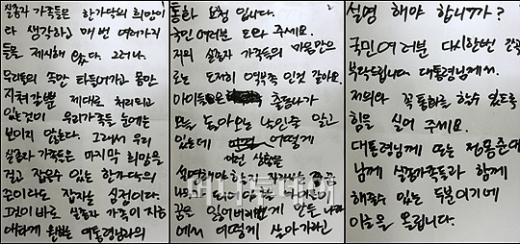 실종자 가족들은 한가닥의 희망이
라 생각하고 매번 여러가지
들을 제시해 왔다. 그러나
우리들의 속만 타들어가고 몸만
지쳐갈뿐 제대로 처리되고
있는것이 우리가족들 눈에는
보이지 않는다. 그래서 우리
실종자 가족은 마지막 희망을
걸고 잡을수 있는 한가닥의
끈이라는 잡자는 심정이다.
그것이 바로 실종자 가족이 지금
애타게 원하는 대통령님과의
2
통화 요청 입니다.
국민 여러분 도와 주세요.
저희 실종자 가족들의 마음만으
로는 도저히 역부족 인것 같아요.
아이들은 출동사가
오늘 돌아오는 날인줄 알고
있는데 어떻게
이런 상황을
설명해야 할지
나라
꿈을 잃어버리게 만든 나라
에서 어떻게 살아가라고
3
설명 해야 합니까?
국민여러분 다시한번 간곡
부탁드립니다 대통령님께서
저희와 꼭 통화를 할수 있도록
힘을 실어 주세요.
대통령님께 또는 정몽준
님께 실종가족들과 함께
해줄수 있는 두분이기에
이글을 올립니다.
머니투데이